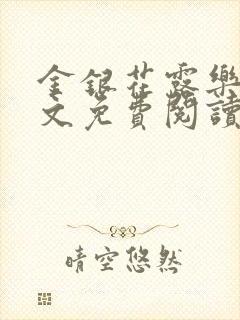 金銀花露樂
文免費閱讀
晴空悠然